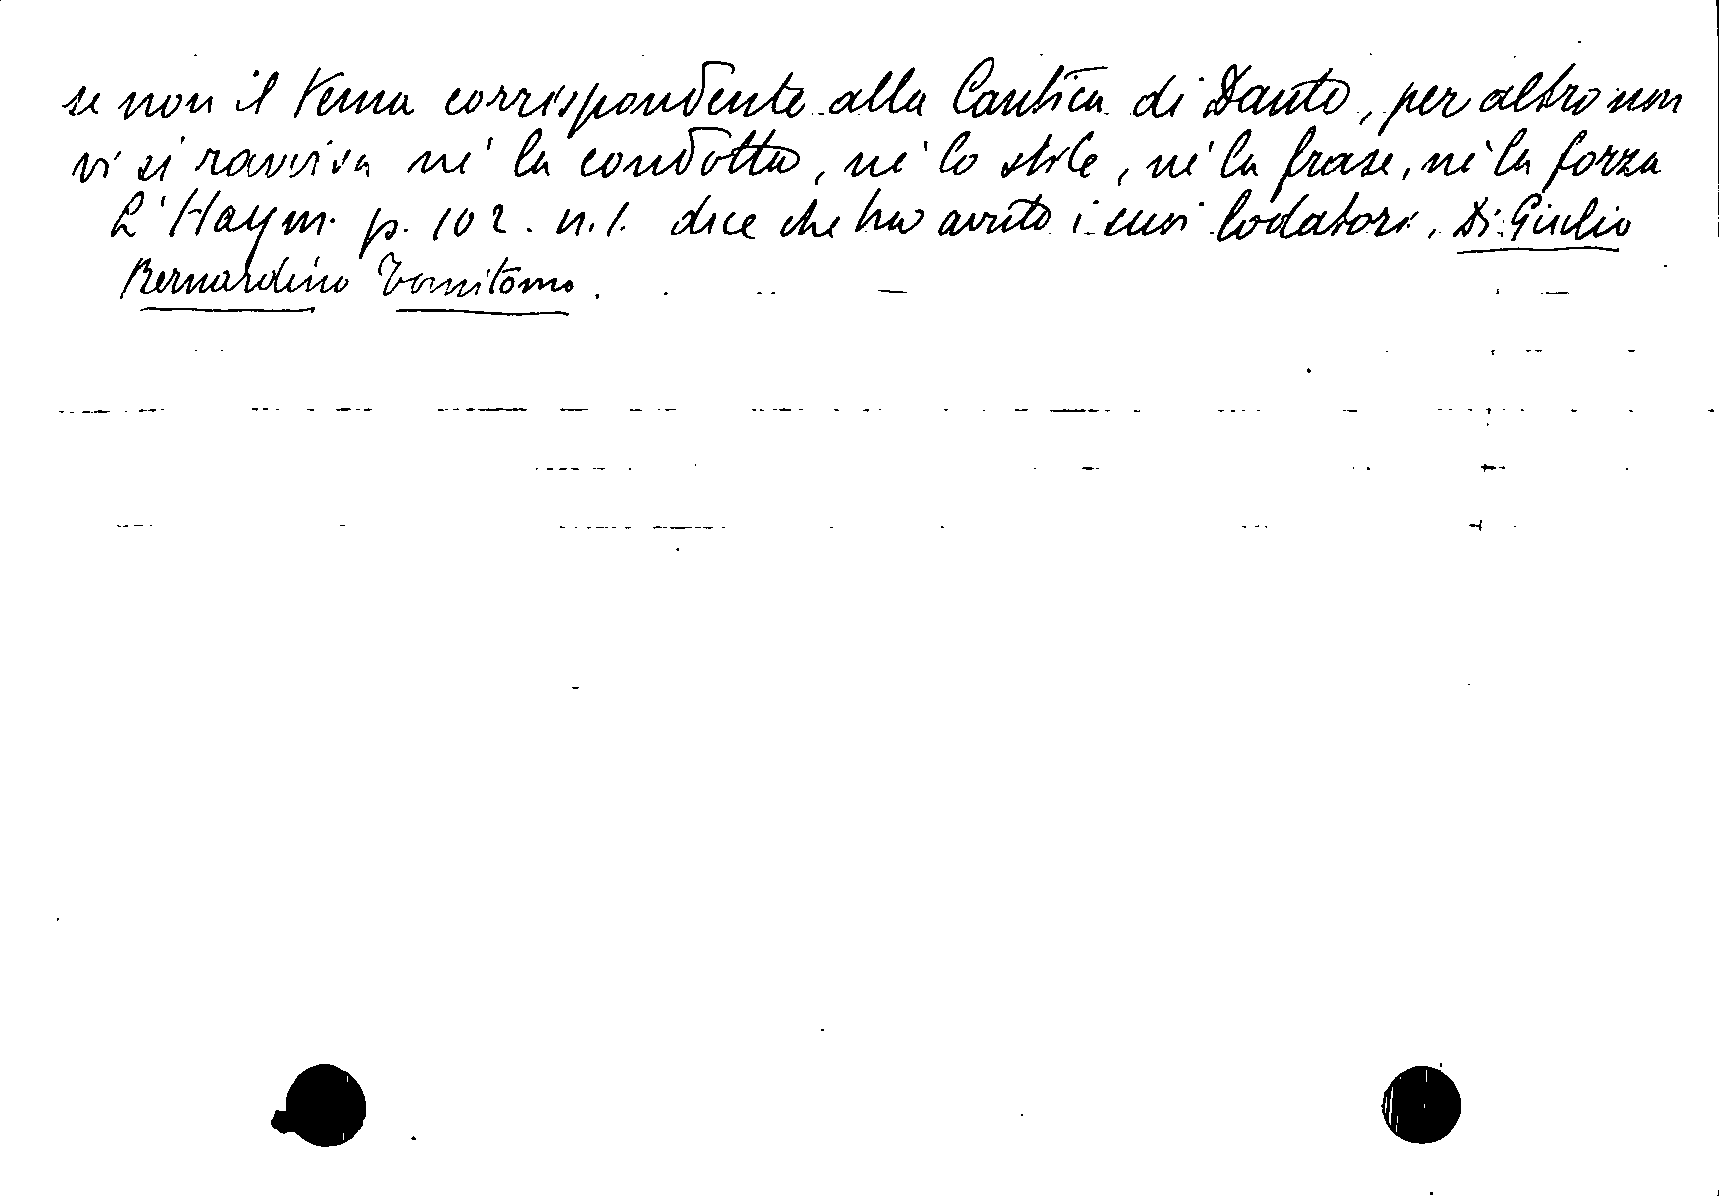 se non il tema corrispondente alla Cantica di Dante, per altro non
vi si ravvisa nè la condotta, nè lo stile, nè la frase, nè la forza
L'Haym. p. 102. n.1. dice che ha avuto i suoi lodatori. Di Giulio
Bernardino Tomitano.